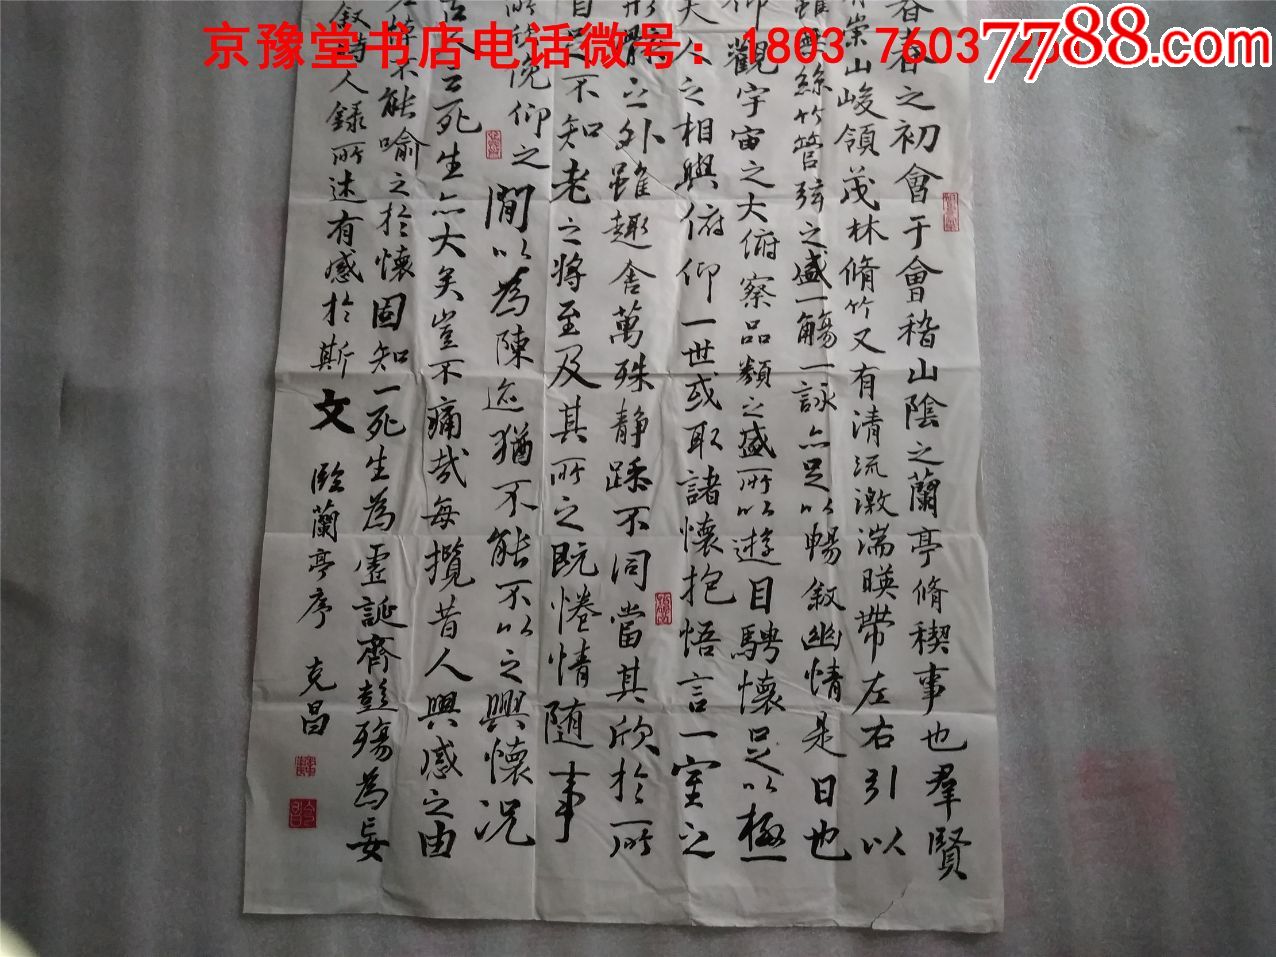 京豫堂书店电话微号：18037603728
7788.com
春之初會于會稽山陰之蘭亭脩稧事也羣賢
崇山峻領茂林脩竹又有清流激湍暎帶左右引以
雖無絲竹管弦之盛一觴一詠亦足以暢叙幽情是日也
仰觀宇宙之大俯察品類之盛所以遊目騁懷足以極
夫人之相與俯仰一世或取諸懷抱悟言一室之
形骸之外雖趣舍萬殊静躁不同當其欣於所
自足不知老之將至及其所之既惓情随事
所欣俛仰之閒以為陳迹猶不能不以之興懷况
古人云死生亦大矣豈不痛哉每攬昔人興感之由
悼不能喻之於懷固知一死生為虚誕齊彭殤為妄
叙時人録所述有感於斯文 臨蘭亭序 克昌